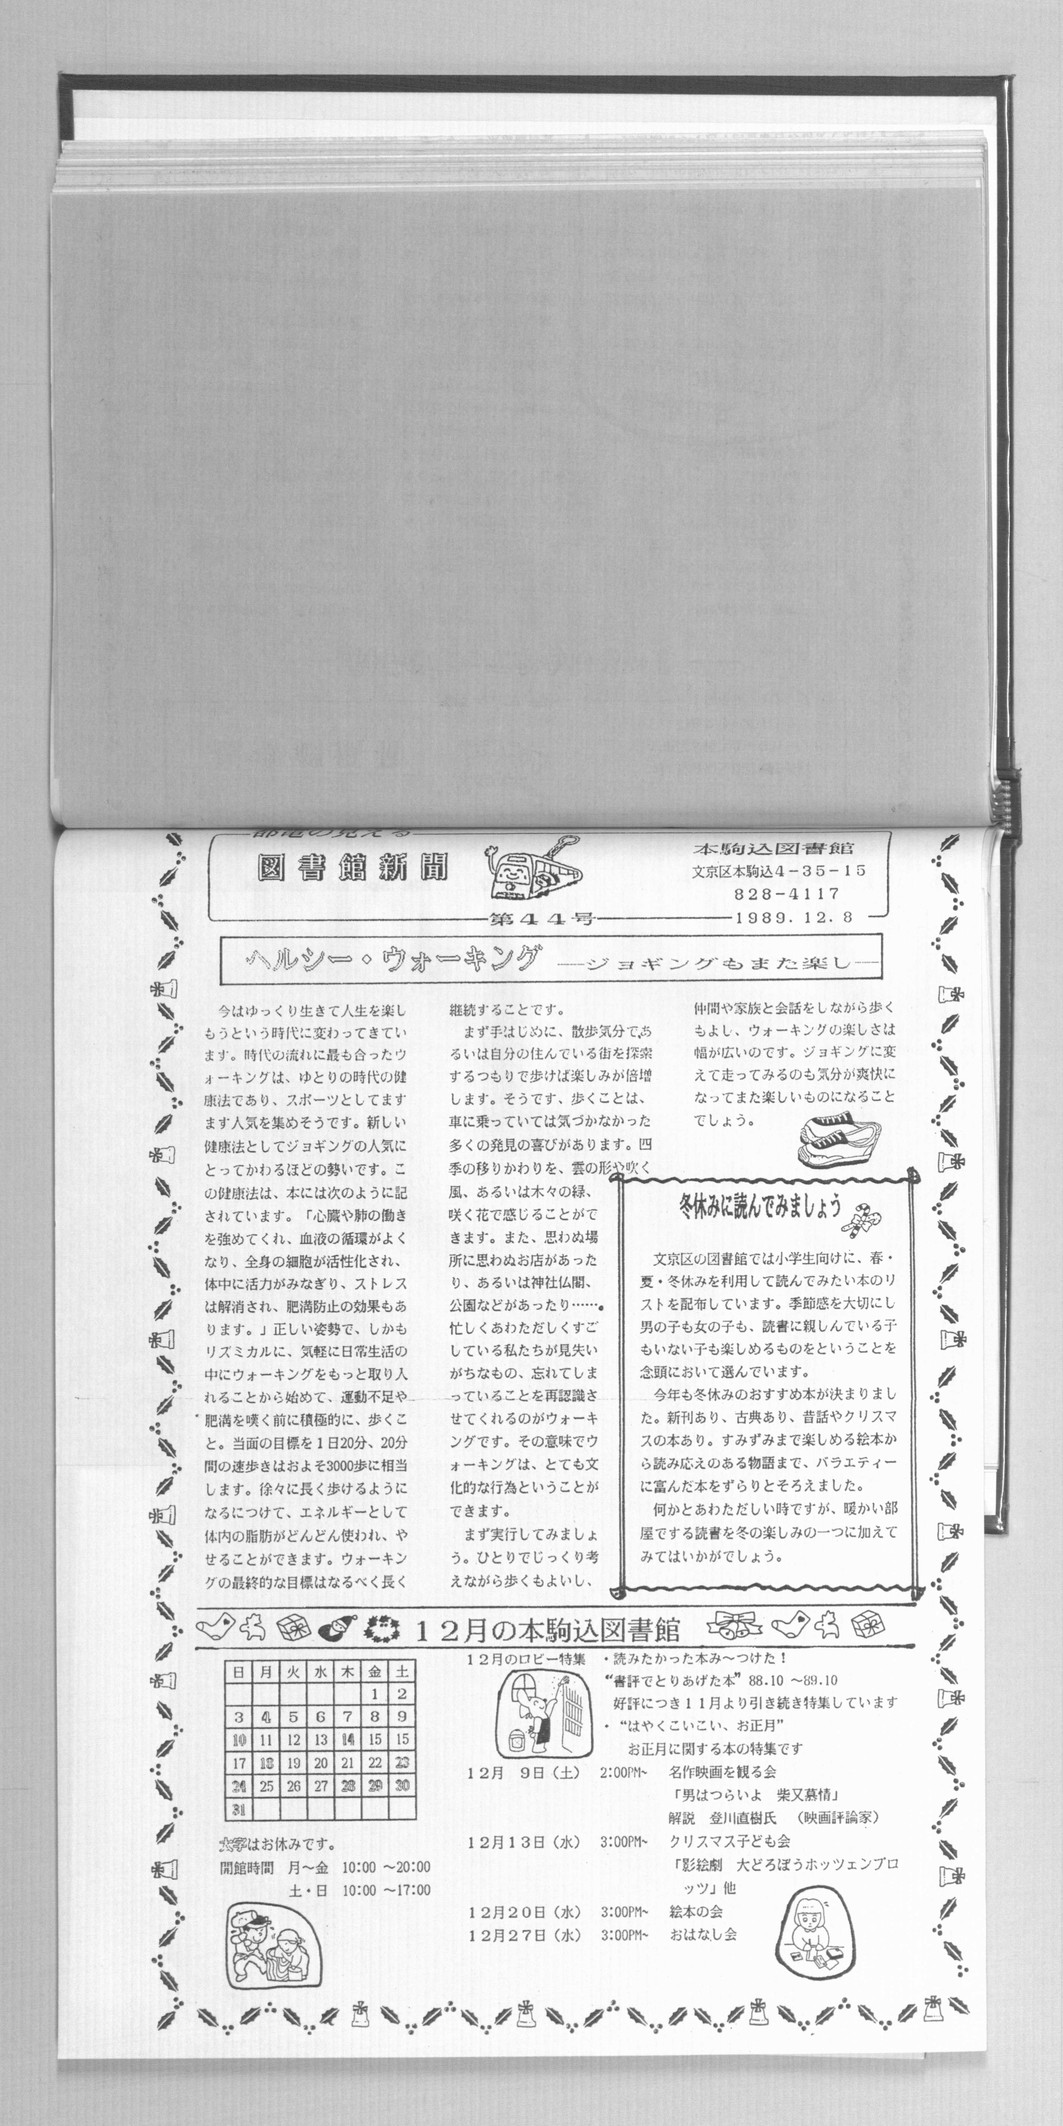 都電の見える
図書館新聞
本駒込図書館
文京区本駒込4-35-15
828-4117
第44号
1989.12.8
ヘルシー・ウォーキング ―ジョギングもまた楽し―
今はゆっくり生きて人生を楽し
もうという時代に変わってきてい
ます。時代の流れに最も合ったウ
ォーキングは、ゆとりの時代の健
康法であり、スポーツとしてます
ます人気を集めそうです。新しい
健康法としてジョギングの人気に
とってかわるほどの勢いです。こ
の健康法は、本には次のように記
されています。「心臓や肺の働き
を強めてくれ、血液の循環がよく
なり、全身の細胞が活性化され、
体中に活力がみなぎり、ストレス
は解消され、肥満防止の効果もあ
ります。」正しい姿勢で、しかも
リズミカルに、気軽に日常生活の
中にウォーキングをもっと取り入
れることから始めて、運動不足や
肥満を嘆く前に積極的に、歩くこ
と。当面の目標を1日20分、20分
間の速歩きはおよそ3000歩に相当
します。徐々に長く歩けるように
なるにつけて、エネルギーとして
体内の脂肪がどんどん使われ、や
せることができます。ウォーキン
グの最終的な目標はなるべく長く
継続することです。
まず手はじめに、散歩気分であ
るいは自分の住んでいる街を探索
するつもりで歩けば楽しみが倍増
します。そうです、歩くことは、
車に乗っていては気づかなかった
多くの発見の喜びがあります。四
季の移りかわりを、雲の形や吹く
風、あるいは木々の緑、
咲く花で感じることがで
きます。また、思わぬ場
所に思わぬお店があった
り、あるいは神社仏閣、
公園などがあったり……。
忙しくあわただしくすご
している私たちが見失い
がちなもの、忘れてしま
っていることを再認識さ
せてくれるのがウォーキ
ングです。その意味でウ
ォーキングは、とても文
化的な行為ということが
できます。
まず実行してみましょ
う。ひとりでじっくり考
えながら歩くもよいし、
仲間や家族と会話をしながら歩く
もよし、ウォーキングの楽しさは
幅が広いのです。ジョギングに変
えて走ってみるのも気分が爽快に
なってまた楽しいものになること
でしょう。
冬休みに読んでみましょう
文京区の図書館では小学生向けに、春・
夏・冬休みを利用して読んでみたい本のリ
ストを配布しています。季節感を大切にし
男の子も女の子も、読書に親しんでいる子
もいない子も楽しめるものをということを
念頭において選んでいます。
今年も冬休みのおすすめ本が決まりまし
た。新刊あり、古典あり、昔話やクリスマ
スの本あり。すみずみまで楽しめる絵本か
ら読み応えのある物語まで、バラエティー
に富んだ本をずらりとそろえました。
何かとあわただしい時ですが、暖かい部
屋でする読書を冬の楽しみの一つに加えて
みてはいかがでしょう。
12月の本駒込図書館
日 月 火 水 木 金 土
1 2
3 4 5 6 7 8 9
10 11 12 13 14 15 15
17 18 19 20 21 22 23
24 25 26 27 28 29 30
31
太字はお休みです。
開館時間 月~金 10:00 ~20:00
土・日 10:00 ~17:00
12月のロビー特集 ・読みたかった本み~つけた!
"書評でとりあげた本" 88.10 ~89.10
好評につき11月より引き続き特集しています
・"はやくこいこい、お正月"
お正月に関する本の特集です
12月 9日(土) 2:00PM~ 名作映画を観る会
「男はつらいよ 柴又慕情」
解説 登川直樹氏 (映画評論家)
12月13日(水) 3:00PM~ クリスマス子ども会
「影絵劇 大どろぼうホッツェンプロ
ッツ」他
12月20日(水) 3:00PM~ 絵本の会
12月27日(水) 3:00PM~ おはなし会